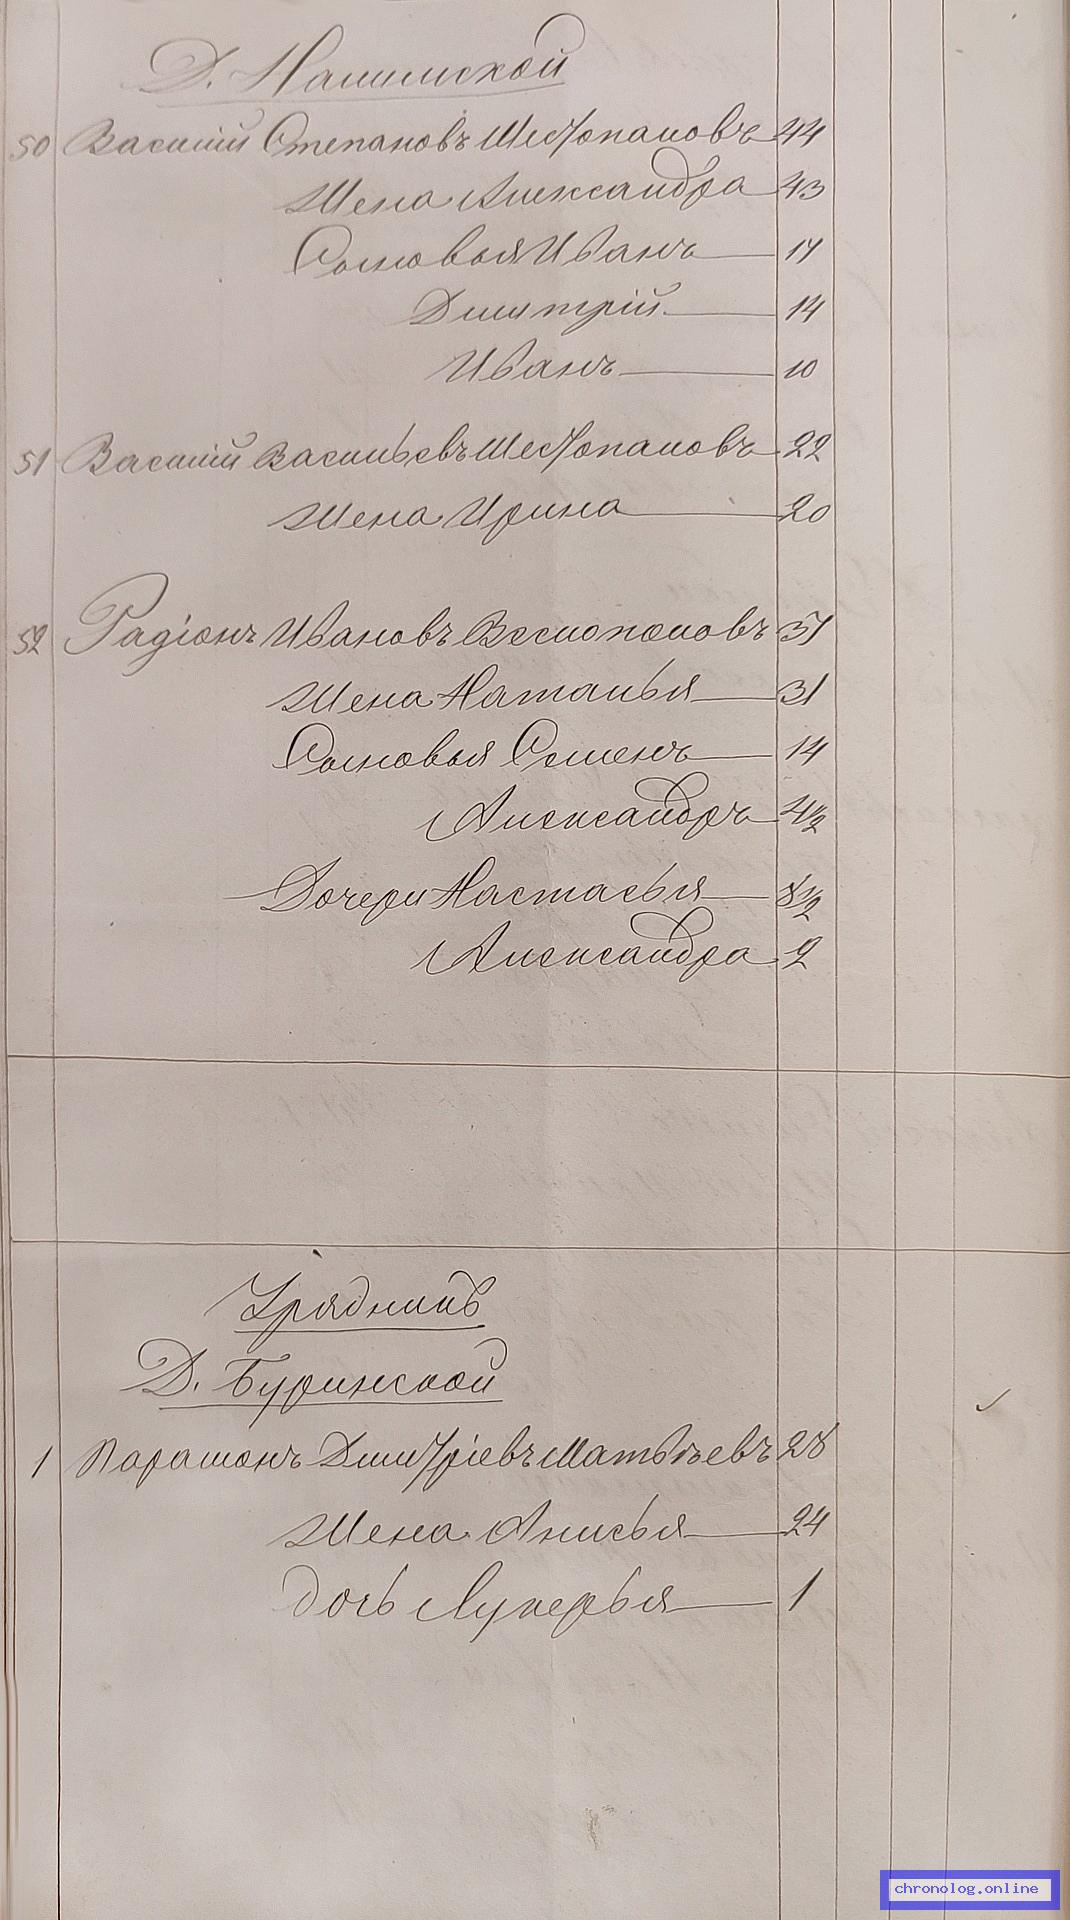 Д. Налимской
50 Василий Степановъ Шестопаловъ 44
Жена Александра 43
Сыновья Иванъ 17
Дмитрій 14
Иванъ 10
51 Василий Васильевъ Шестопаловъ 22
Жена Ирина 20
52 Радіонъ Ивановъ 37
Жена Наталья 31
Сыновья Семенъ 14
Александръ 4½
Дочери Настасья 8½
Александра 2
Урядникъ
Д. Буринской
1 Парамонъ Дмитріевъ Матвѣевъ 28
Жена Анисья 24
дочь Лукерья 1
chronolog.online